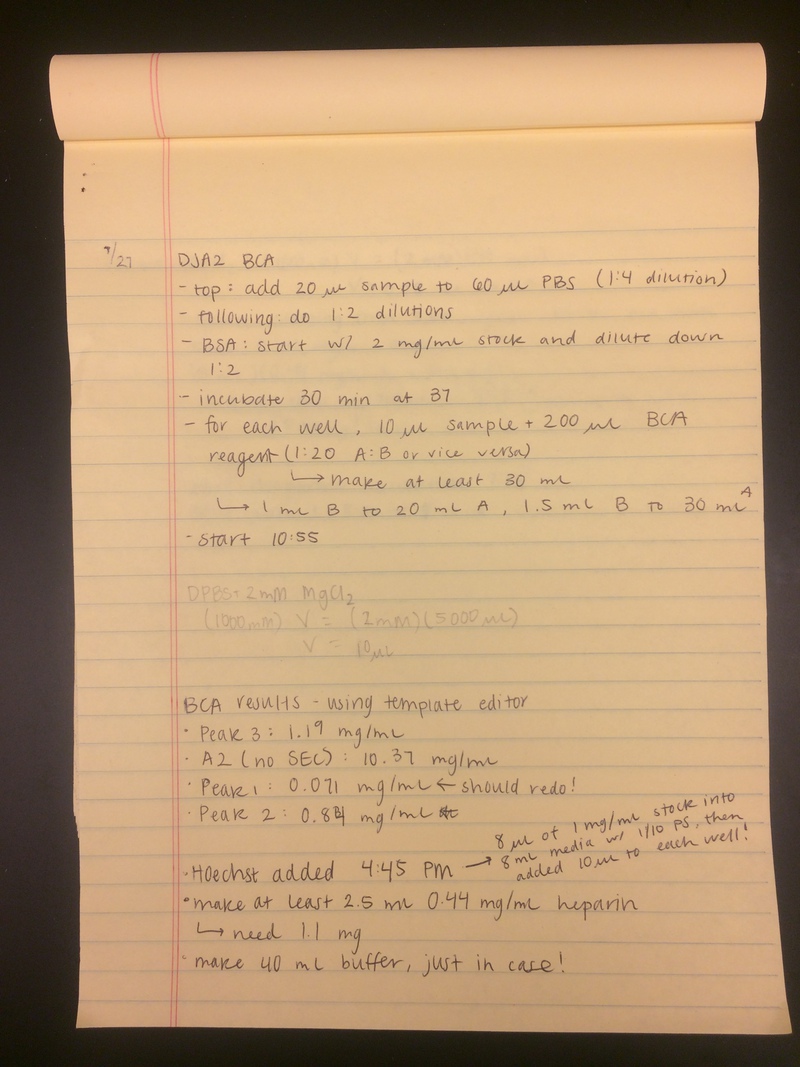 7/27
DJA2 BCA
- top: add 20 µL sample to 60 µL PBS (1:4 dilution)
- following: do 1:2 dilutions
- BSA: start w/ 2 mg/mL stock and dilute down
1:2
- incubate 30 min at 37
- for each well, 10 µL sample + 200 µL BCA
reagent (1:20 A:B or vice versa)
↳ make at least 30 mL
↳ 1 mL B to 20 mL A, 1.5 mL B to 30 mL A
- start 10:55
DPBS + 2mM MgCl2
(1000mM) V = (2mM)(5000 µL)
V = 10µL
BCA results - using template editor
· Peak 3: 1.19 mg/mL
· A2 (no SEC): 10.37 mg/mL
· Peak 1: 0.071 mg/mL ← should redo!
· Peak 2: 0.84 mg/mL
· Hoechst added 4:45 PM → 8 µL of 1 mg/mL stock into
8 mL media w/ 1/10 PS, then
added 10 µL to each well!
· make at least 2.5 mL 0.44 mg/mL heparin
↳ need 1.1 mg
· make 40 mL buffer, just in case!